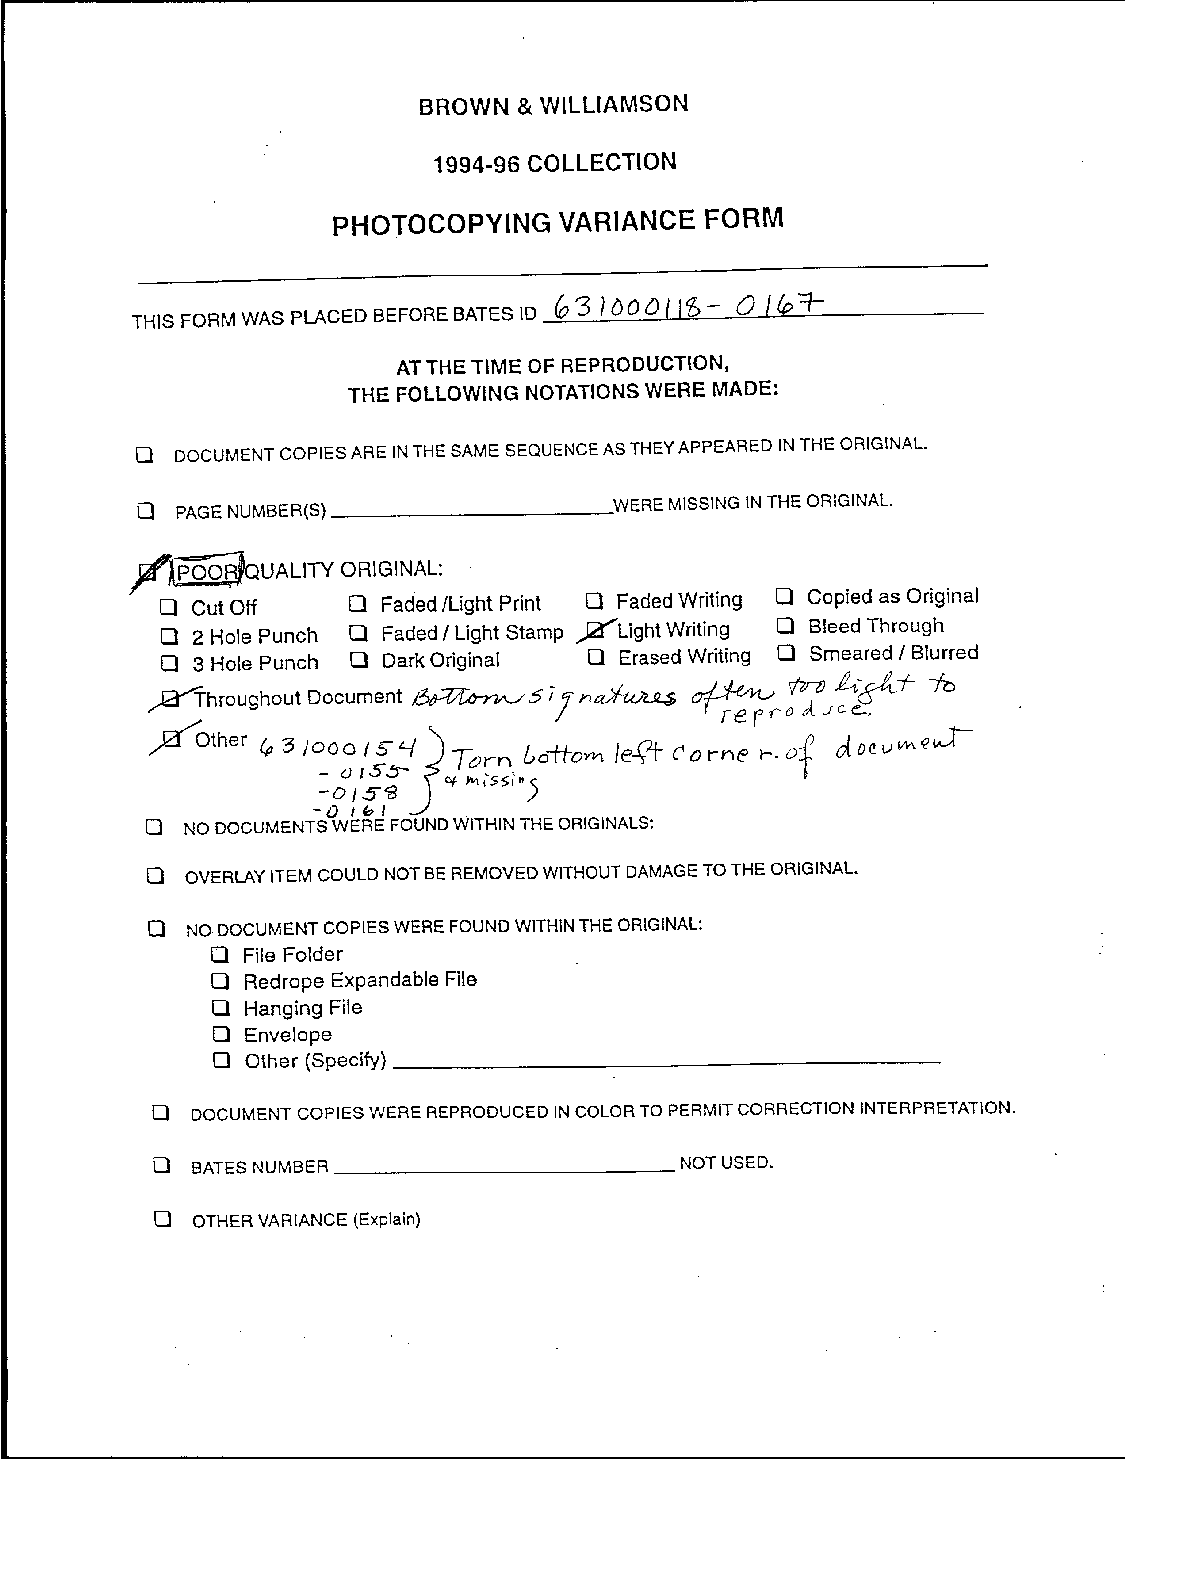 BROWN & WILLIAMSON
1994-96 COLLECTION
PHOTOCOPYING VARIANCE FORM
THIS FORM WAS PLACED BEFORE BATES ID 631000118- 0167
AT THE TIME OF REPRODUCTION,
THE FOLLOWING NOTATIONS WERE MADE:
DOCUMENT COPIES ARE IN THE SAME SEQUENCE AS THEY APPEARED IN THE ORIGINAL.
PAGE NUMBER(S) WERE MISSING IN THE ORIGINAL.
POOR QUALITY ORIGINAL:
Cut Off Faded /Light Print Faded Writing Copied as Original
2 Hole Punch Faded / Light Stamp Light Writing Bleed Through
3 Hole Punch Dark Original Erased Writing Smeared / Blurred
Throughout Document Bottom signatures often too light to
reproduce.
Other 631000154 Torn bottom left corner of document
- 0155 & missing
-0158
-0161
NO DOCUMENTS WERE FOUND WITHIN THE ORIGINALS:
OVERLAY ITEM COULD NOT BE REMOVED WITHOUT DAMAGE TO THE ORIGINAL.
NO DOCUMENT COPIES WERE FOUND WITHIN THE ORIGINAL:
File Folder
Redrope Expandable File
Hanging File
Envelope
Other (Specify)
DOCUMENT COPIES WERE REPRODUCED IN COLOR TO PERMIT CORRECTION INTERPRETATION.
BATES NUMBER NOT USED.
OTHER VARIANCE (Explain)